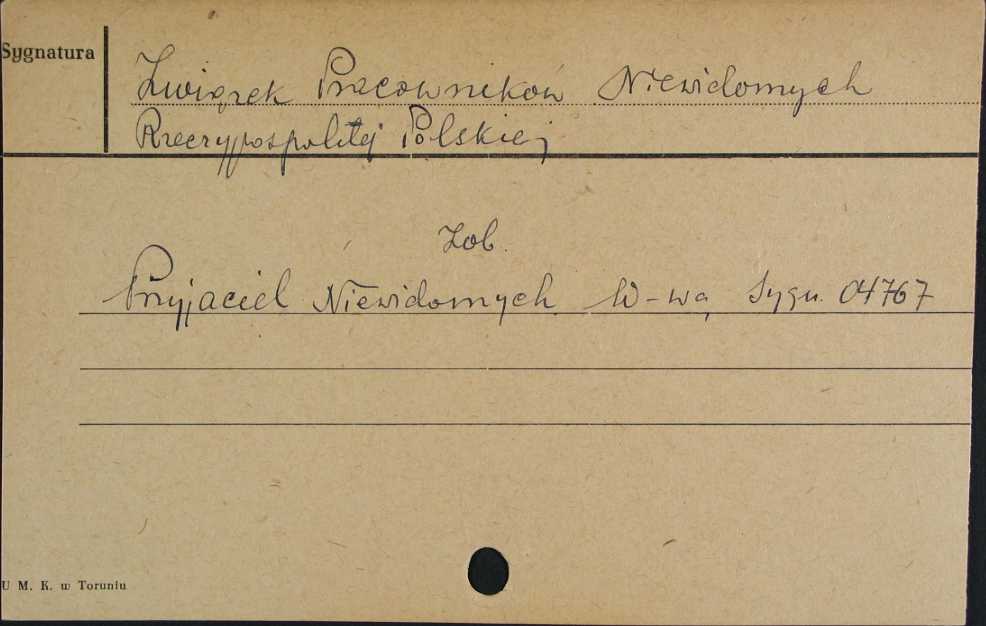 Sygnatura
Związek Pracowników Niewidomych
Rzeczypospolitej Polskiej
Zob.
Przyjaciel Niewidomych W-wa, Sygn. 04767
U M. K. w Toruniu